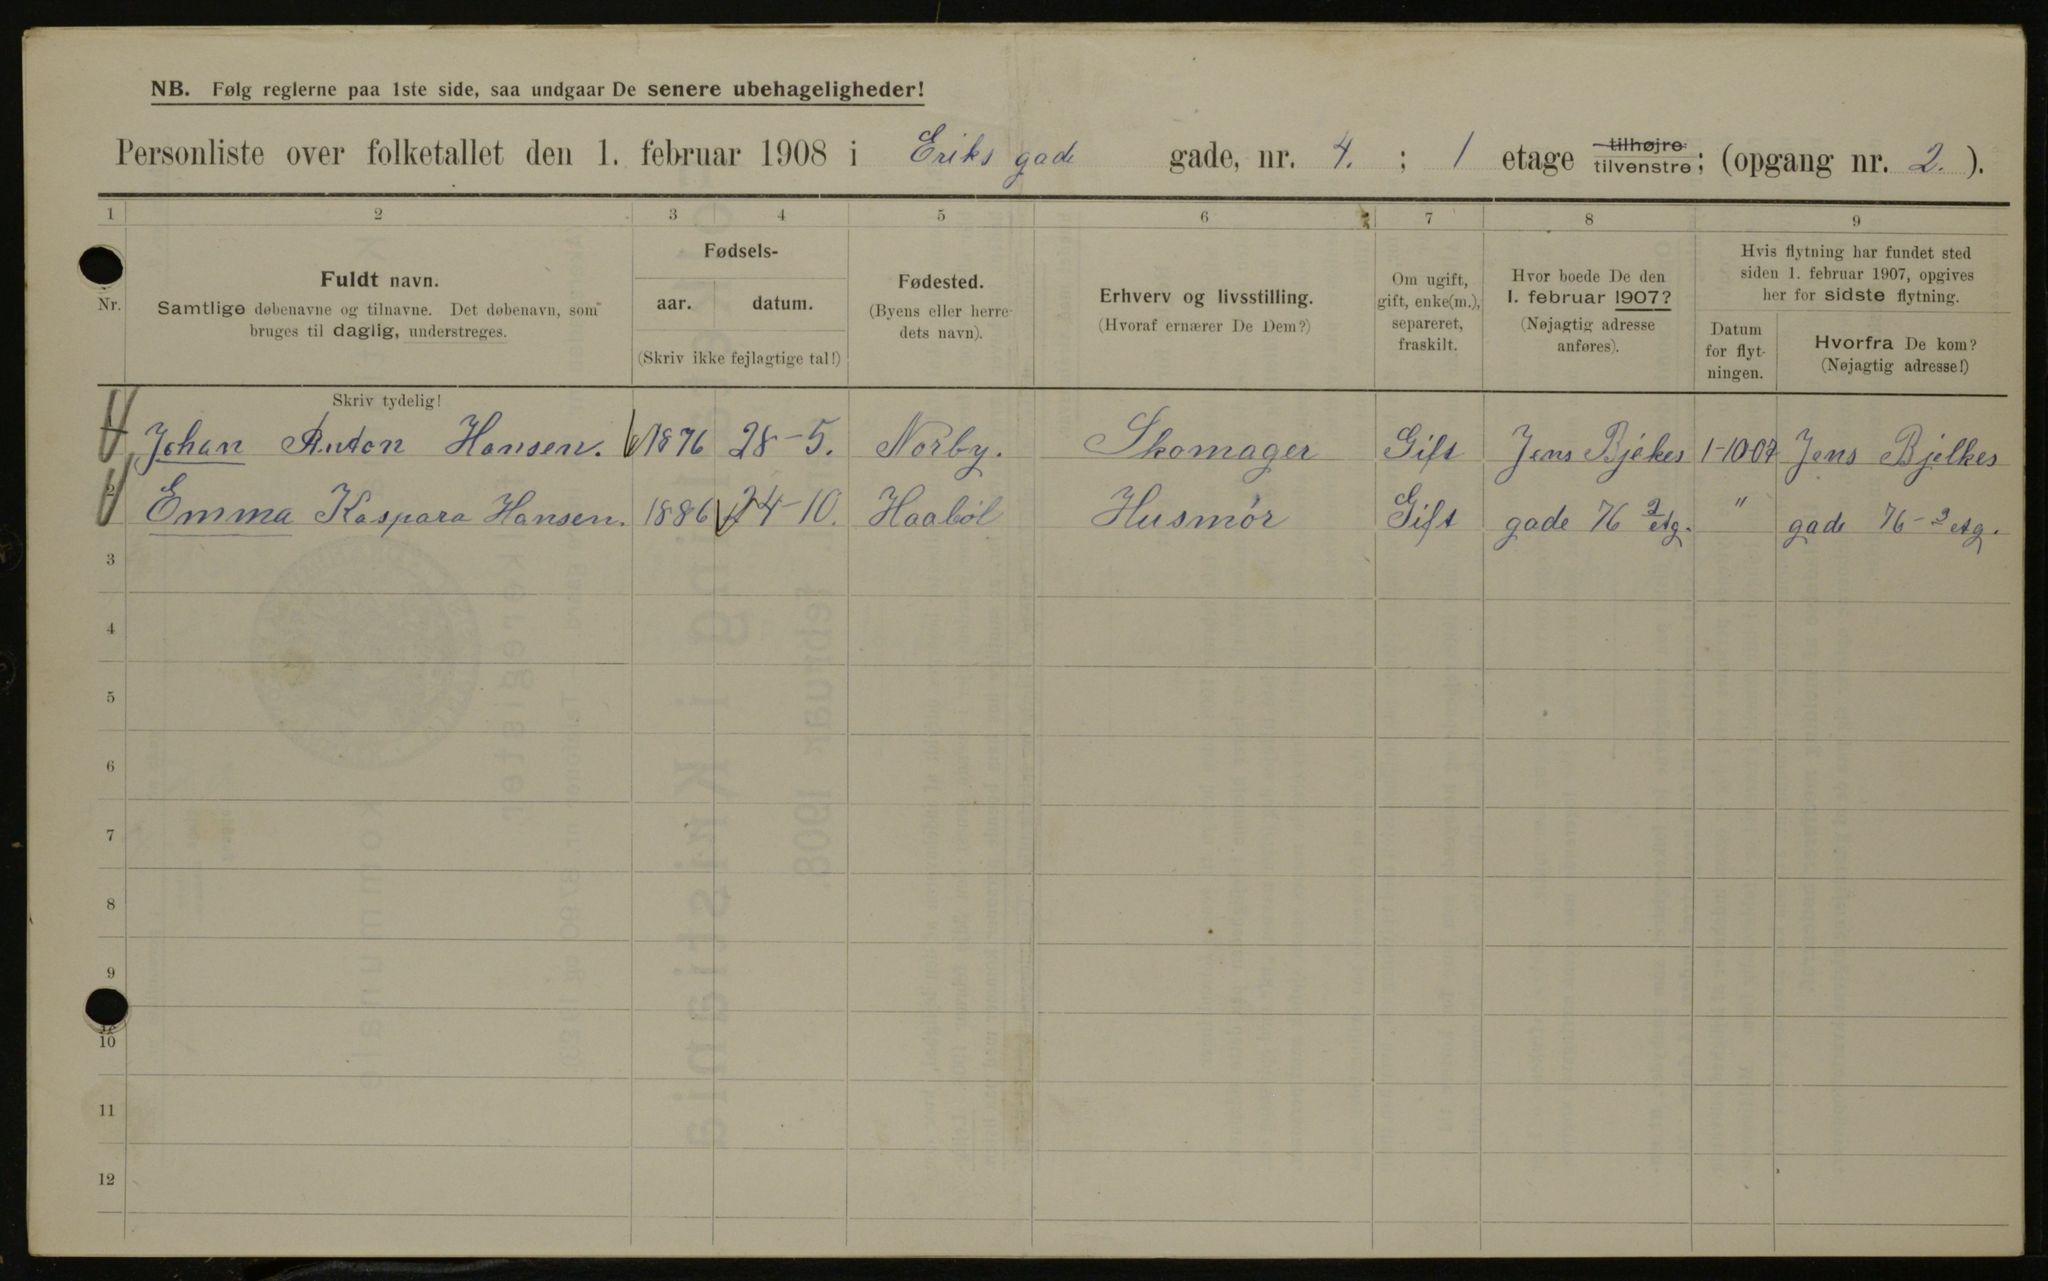 NB. Følg reglerne paa 1ste side, saa undgaar De senere ubehageligheder!
Personliste over folketallet den 1. februar 1908 i Eriks gade gade, nr. 4. ; 1 etage tilhøjre tilvenstre; (opgang nr. 2. ).
1 2 3 4 5 6 7 8 9
Nr.
Fuldt navn.
Samtlige døbenavne og tilnavne. Det døbenavn, som
bruges til daglig, understreges.
Fødsels-
aar. datum.
(Skriv ikke fejlagtige tal!)
Fødested.
(Byens eller herre-
dets navn).
Erhverv og livsstilling.
(Hvoraf ernærer De Dem?)
Om ugift,
gift, enke(m.),
separeret,
fraskilt.
Hvor boede De den
1. februar 1907?
(Nøjagtig adresse
anføres).
Hvis flytning har fundet sted
siden 1. februar 1907, opgives
her for sidste flytning.
Datum
for flyt-
ningen.
Hvorfra De kom?
(Nøjagtig adresse!)
Skriv tydelig!
Johan Anton Hansen. 1876 28-5. Norby. Skomager Gift Jens Bjekes 1-10-07 Jens Bjelkes
2 Emma Kaspara Hansen. 1886 24-10. Haabøl Husmør Gift gade 76 2 etg. " gade 76-2 etg.
3
4
5
6
7
8
9
10
11
12